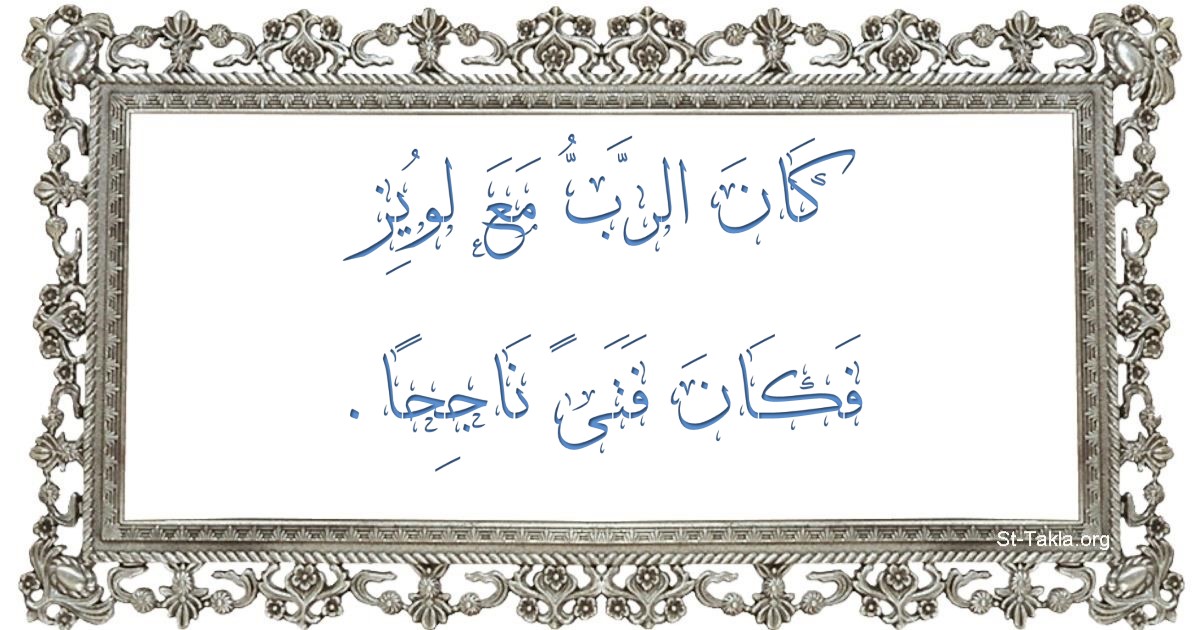 كَانَ الرَّبُّ مَعَ لويُزِ
فَكَانَ فَتَىً نَاجِحًا .
St-Takla.org